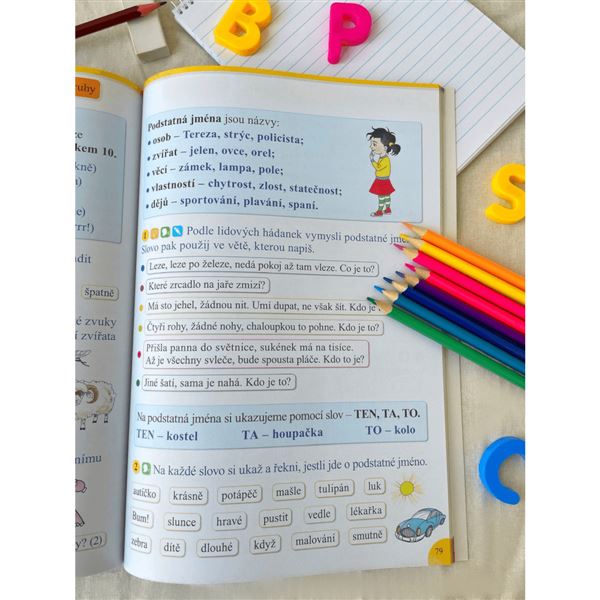 B P
S
C
ruby
ze
kem 10.
kně)
)
)
rr!)
dit
špatně
é zvuky
í zvířata
nímu
y? (2)
Podstatná jména jsou názvy:
• osob – Tereza, strýc, policista;
• zvířat – jelen, ovce, orel;
• věcí – zámek, lampa, pole;
• vlastností – chytrost, zlost, statečnost;
• dějů – sportování, plavání, spaní.
1 Podle lidových hádanek vymysli podstatné jmé
Slovo pak použij ve větě, kterou napiš.
Leze, leze po železe, nedá pokoj až tam vleze. Co je to?
Které zrcadlo na jaře zmizí?
Má sto jehel, žádnou nit. Umí dupat, ne však šít. Kdo je
Čtyři rohy, žádné nohy, chaloupkou to pohne. Kdo je to?
Přišla panna do světnice, sukének má na tisíce.
Až je všechny svleče, bude spousta pláče. Kdo to je?
Jiné šatí, sama je nahá. Kdo je to?
Na podstatná jména si ukazujeme pomocí slov – TEN, TA, TO.
TEN – kostel TA – houpačka TO – kolo
2 Na každé slovo si ukaž a řekni, jestli jde o podstatné jméno.
autíčko krásně potápěč mašle tulipán luk
Bum! slunce hravé pustit vedle lékařka
zebra dítě dlouhé když malování smutně
79